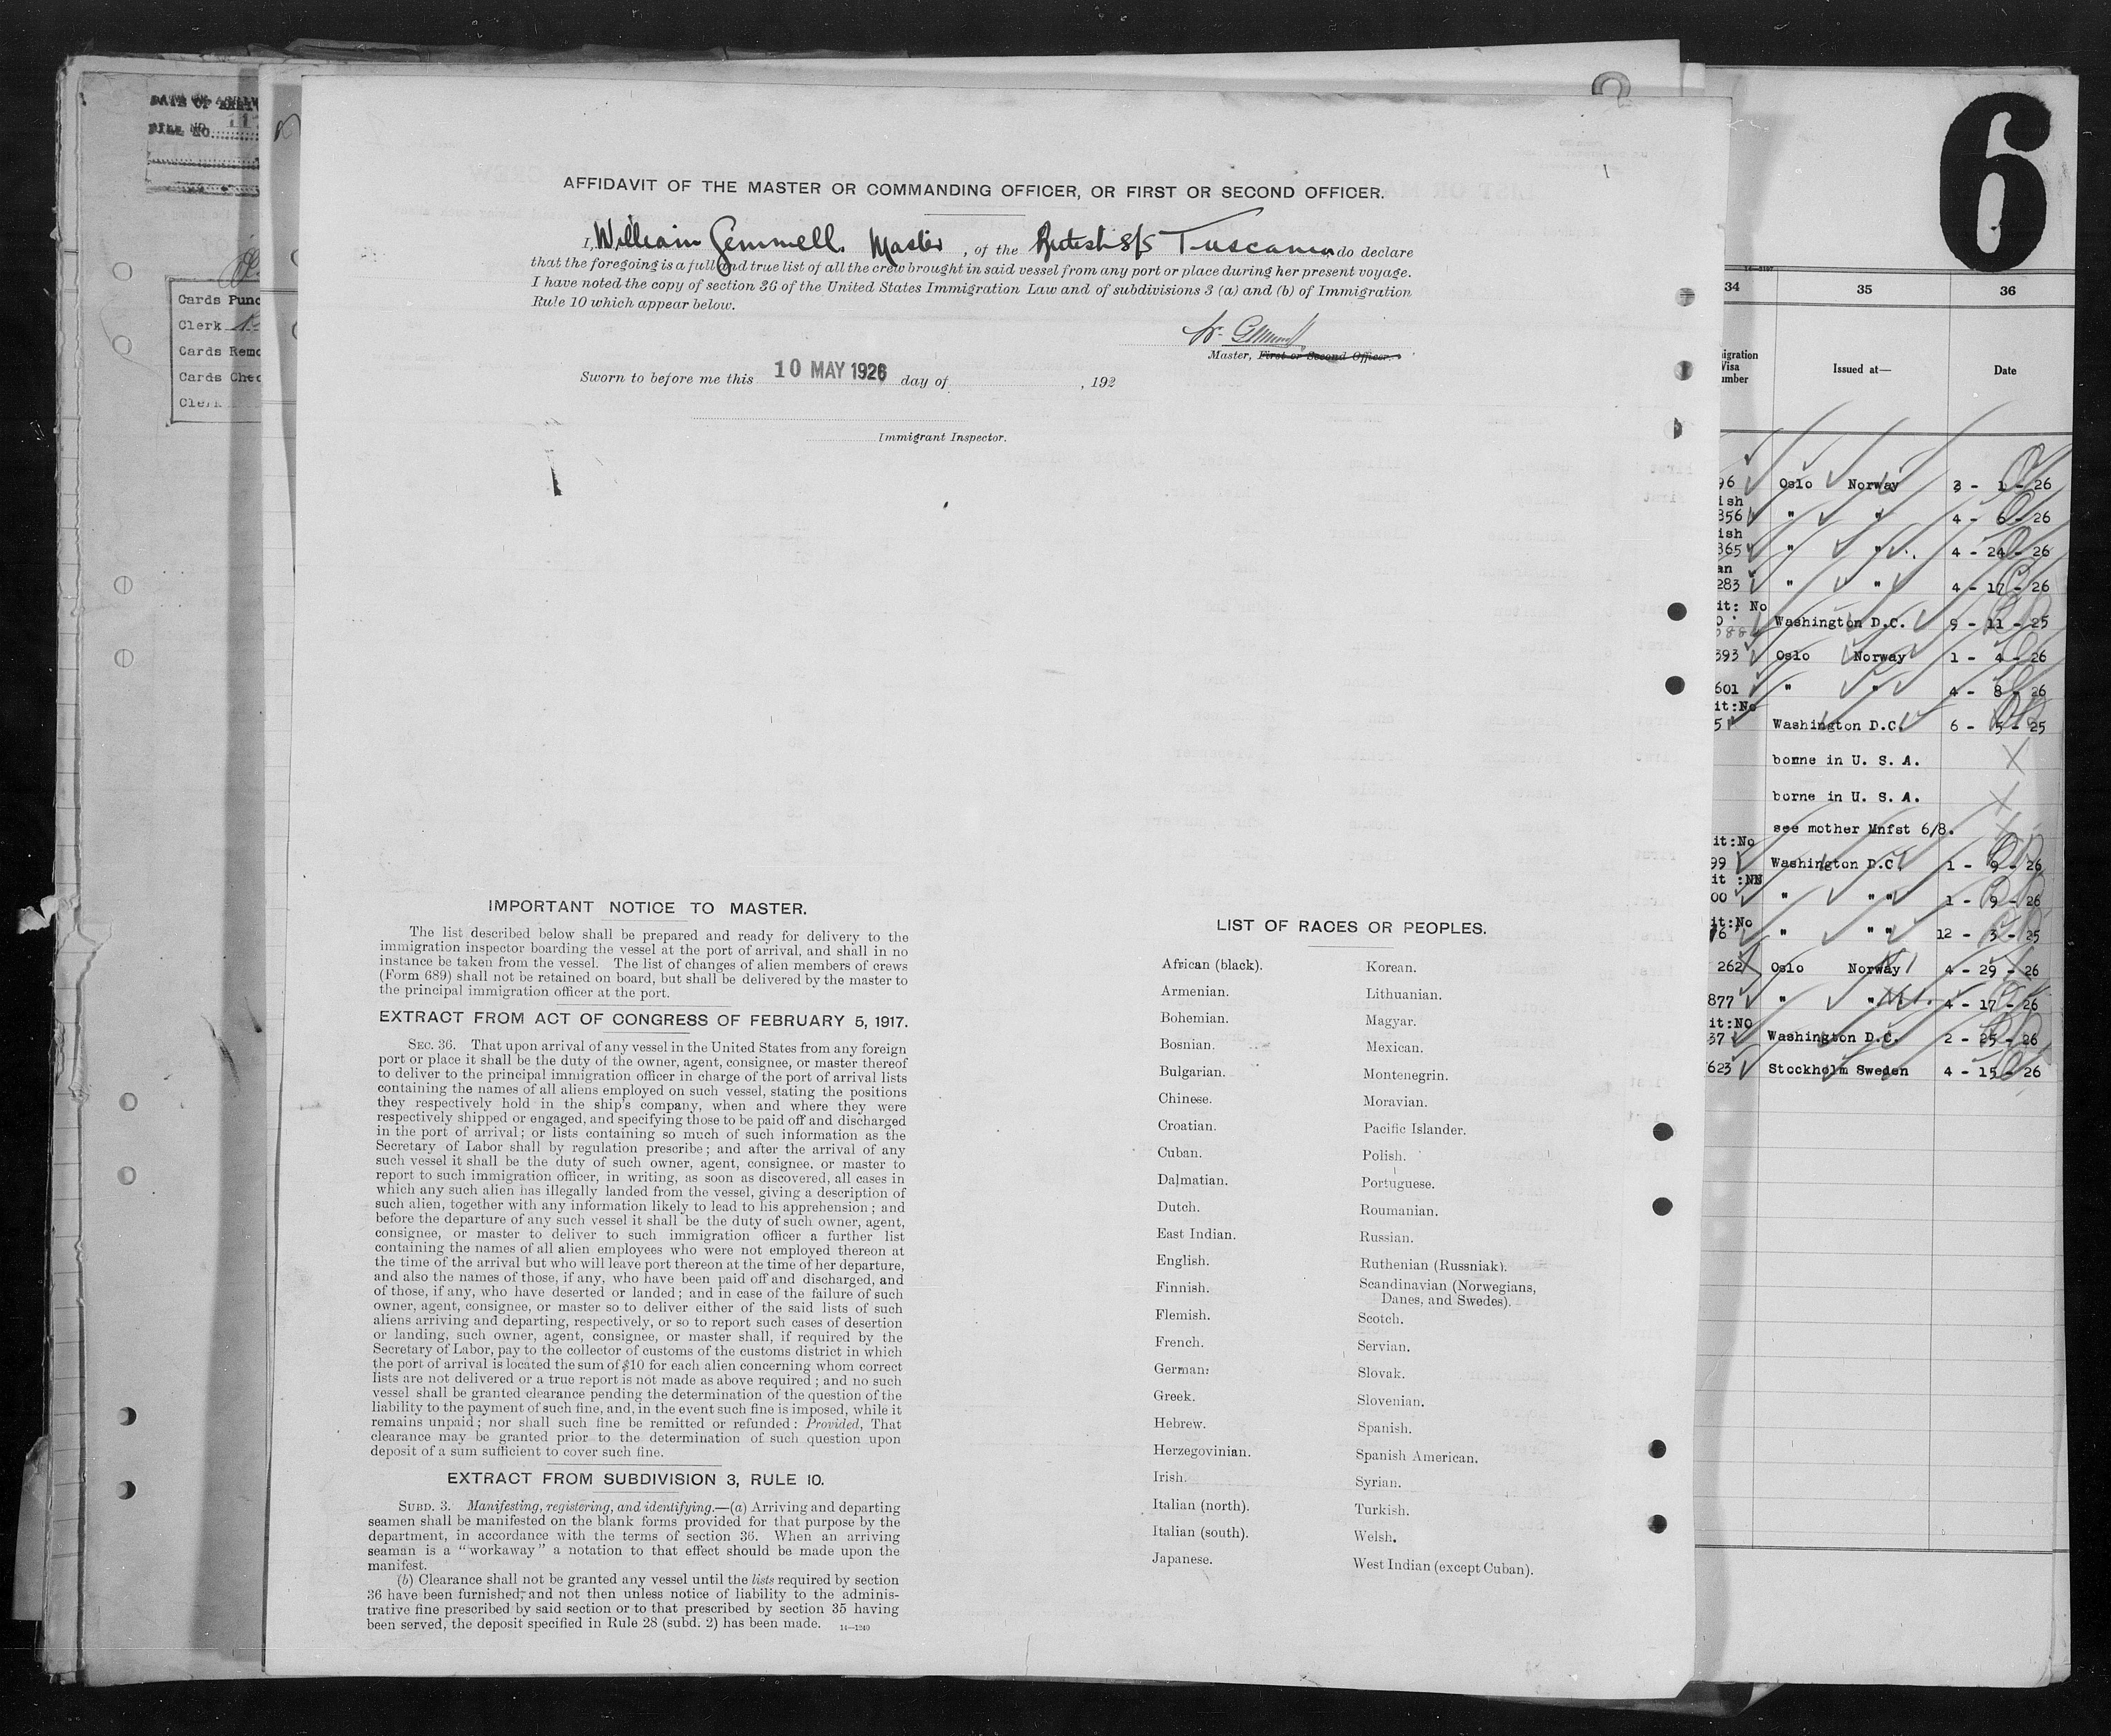 DATE OF
FILE NO.
Cards Punc
Clerk
Cards Remo
Cards Chec
Clerk
AFFIDAVIT OF THE MASTER OR COMMANDING OFFICER, OR FIRST OR SECOND OFFICER.
I, William Gemmell. Master, of the British S/S Tuscania, do declare
that the foregoing is a full and true list of all the crew brought in said vessel from any port or place during her present voyage.
I have noted the copy of section 36 of the United States Immigration Law and of subdivisions 3 (a) and (b) of Immigration
Rule 10 which appear below.
W. Gemmell
Master, First or Second Officer.
Sworn to before me this 10 MAY 1926 day of , 192
Immigrant Inspector.
IMPORTANT NOTICE TO MASTER.
The list described below shall be prepared and ready for delivery to the
immigration inspector boarding the vessel at the port of arrival, and shall in no
instance be taken from the vessel. The list of changes of alien members of crews
(Form 689) shall not be retained on board, but shall be delivered by the master to
the principal immigration officer at the port.
EXTRACT FROM ACT OF CONGRESS OF FEBRUARY 5, 1917.
SEC. 36. That upon arrival of any vessel in the United States from any foreign
port or place it shall be the duty of the owner, agent, consignee, or master thereof
to deliver to the principal immigration officer in charge of the port of arrival lists
containing the names of all aliens employed on such vessel, stating the positions
they respectively hold in the ship's company, when and where they were
respectively shipped or engaged, and specifying those to be paid off and discharged
in the port of arrival; or lists containing so much of such information as the
Secretary of Labor shall by regulation prescribe; and after the arrival of any
such vessel it shall be the duty of such owner, agent, consignee, or master to
report to such immigration officer, in writing, as soon as discovered, all cases in
which any such alien has illegally landed from the vessel, giving a description of
such alien, together with any information likely to lead to his apprehension; and
before the departure of any such vessel it shall be the duty of such owner, agent,
consignee, or master to deliver to such immigration officer a further list
containing the names of all alien employees who were not employed thereon at
the time of the arrival but who will leave port thereon at the time of her departure,
and also the names of those, if any, who have been paid off and discharged, and
of those, if any, who have deserted or landed; and in case of the failure of such
owner, agent, consignee, or master so to deliver either of the said lists of such
aliens arriving and departing, respectively, or so to report such cases of desertion
or landing, such owner, agent, consignee, or master shall, if required by the
Secretary of Labor, pay to the collector of customs of the customs district in which
the port of arrival is located the sum of $10 for each alien concerning whom correct
lists are not delivered or a true report is not made as above required; and no such
vessel shall be granted clearance pending the determination of the question of the
liability to the payment of such fine, and, in the event such fine is imposed, while it
remains unpaid; nor shall such fine be remitted or refunded: Provided, That
clearance may be granted prior to the determination of such question upon
deposit of a sum sufficient to cover such fine.
EXTRACT FROM SUBDIVISION 3, RULE 10.
SUBD. 3. Manifesting, registering, and identifying.—(a) Arriving and departing
seamen shall be manifested on the blank forms provided for that purpose by the
department, in accordance with the terms of section 36. When an arriving
seaman is a "workaway" a notation to that effect should be made upon the
manifest.
(b) Clearance shall not be granted any vessel until the lists required by section
36 have been furnished, and not then unless notice of liability to the adminis-
trative fine prescribed by said section or to that prescribed by section 35 having
been served, the deposit specified in Rule 28 (subd. 2) has been made. 14—1240
LIST OF RACES OR PEOPLES.
African (black).
Armenian.
Bohemian.
Bosnian.
Bulgarian.
Chinese.
Croatian.
Cuban.
Dalmatian.
Dutch.
East Indian.
English.
Finnish.
Flemish.
French.
German.
Greek.
Hebrew.
Herzegovinian.
Irish.
Italian (north).
Italian (south).
Japanese.
Korean.
Lithuanian.
Magyar.
Mexican.
Montenegrin.
Moravian.
Pacific Islander.
Polish.
Portuguese.
Roumanian.
Russian.
Ruthenian (Russniak).
Scandinavian (Norwegians,
Danes, and Swedes).
Scotch.
Servian.
Slovak.
Slovenian.
Spanish.
Spanish American.
Syrian.
Turkish.
Welsh.
West Indian (except Cuban).
6
34 35 36
igration
Visa
umber
Issued at—
Date
96 Oslo Norway 3 - 1 - 26
ish
856 " " 4 - 6 - 26
ish
365 " " 4 - 24 - 26
an
283 " " 4 - 17 - 26
it: No
Washington D.C. 9 - 11 - 25
393 Oslo Norway 1 - 4 - 26
601 " " 4 - 8 - 26
it:No
51 Washington D.C. 6 - 5 - 25
borne in U. S. A.
borne in U. S. A.
see mother Mnfst 6/8.
it:No
99 Washington D.C. 1 - 9 - 26
it :NN
00 " " " 1 - 9 - 26
it:No
76 " " " 12 - 3 - 25
262 Oslo Norway 4 - 29 - 26
877 " " 4 - 17 - 26
it:NO
37 Washington D.C. 2 - 25 - 26
623 Stockholm Sweden 4 - 15 - 26